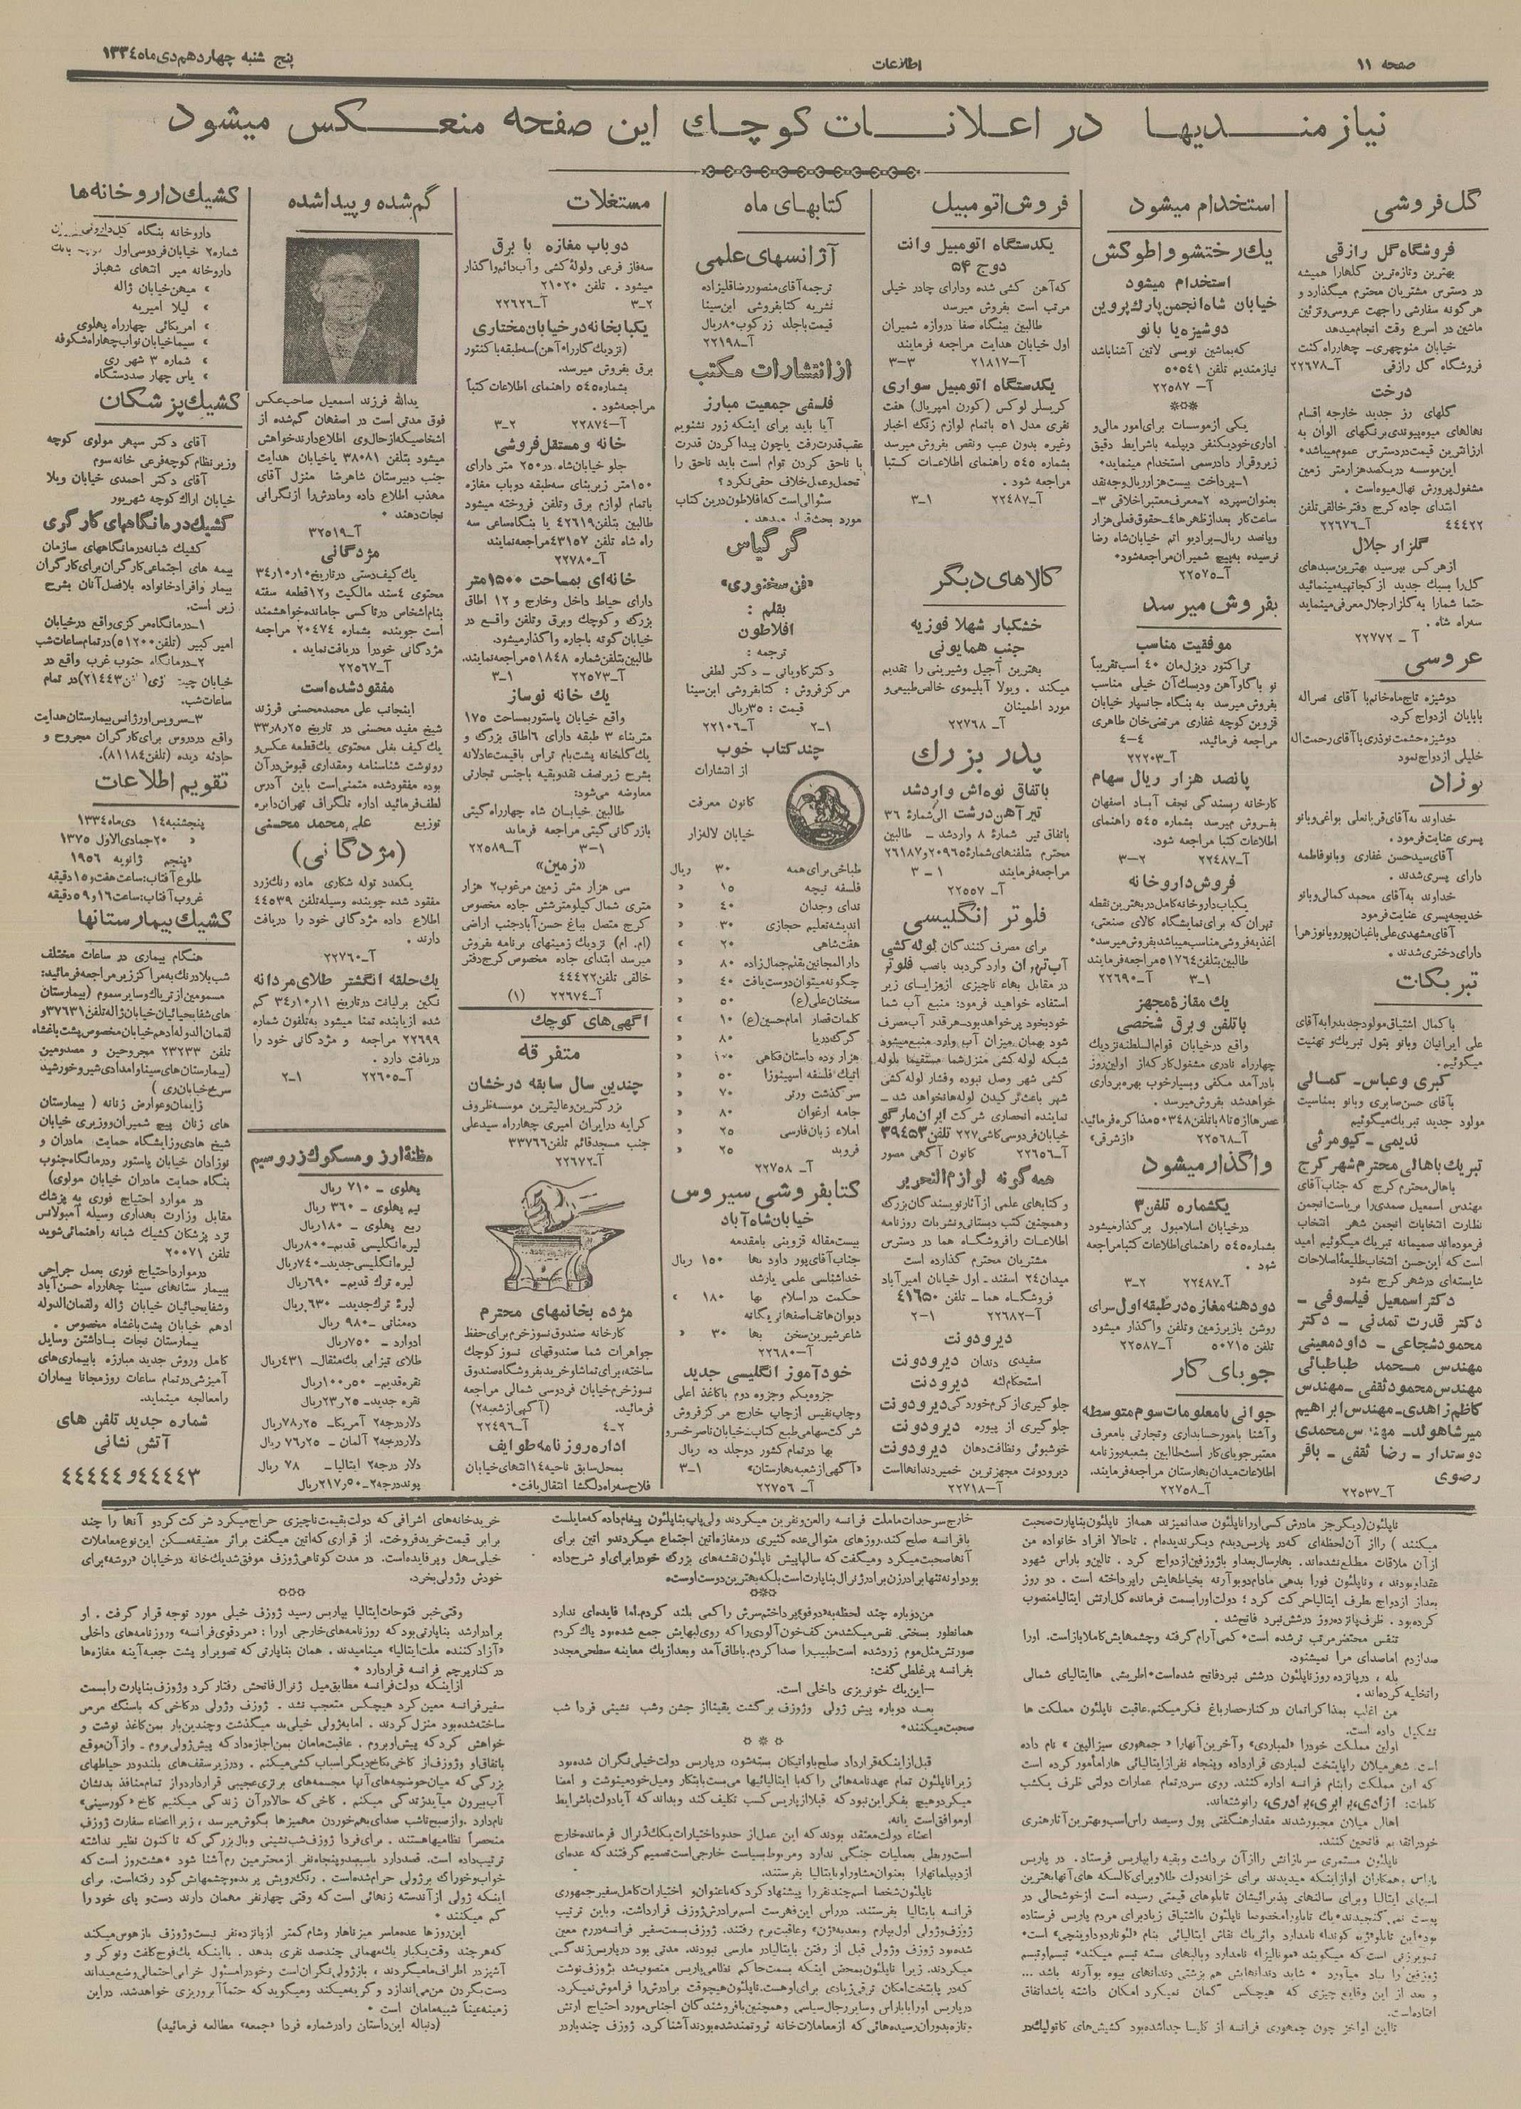 صفحه ۱۱
اطلاعات
پنج شنبه چهاردهم دی ماه ۱۳۳۴
نیازمندیها در اعلانات کوچك این صفحه منعکس میشود
گل فروشی
فروشگاه گل رازقی
بهترین وتازه‌ترین گلهارا همیشه
در دسترس مشتریان محترم میگذارد و
هر گونه سفارشی را جهت عروسی و تزئین
ماشین در اسرع وقت انجام میدهد
خیابان منوچهری - چهارراه کنت
فروشگاه گل رازقی آ-۲۲۶۷۸
درخت
گلهای رز جدید خارجه اقسام
نهالهای میوه پیوندی برنگهای الوان به
ارزانترین قیمت دردسترس عموم میباشد.
این موسسه در یکصد هزار متر زمین
مشغول پرورش نهال میوه است.
ابتدای جاده کرج دفتر خالقی تلفن
۴۴۴۲۲ آ-۲۲۶۷۶
گلزار جلال
ازهر کس بپرسید بهترین سبدهای
گل را بسبك جدید از کجا تهیه مینمائید
حتما شمارا به گلزار جلال معرفی مینماید
سه راه شاه.
آ - ۲۲۷۷۲
عروسی
دوشیزه تاج ماه خانم با آقای نصراله
بابایان ازدواج کرد.
دوشیزه حشمت نوذری با آقای رحمت اله
خلیلی ازدواج نمود
نوزاد
خداوند به آقای قربانعلی بواغی و بانو
پسری عنایت فرمود.
آقای سید حسن غفاری و بانو فاطمه
دارای پسری شدند.
خداوند به آقای محمد کمالی و بانو
خدیجه پسری عنایت فرمود
آقای مشهدی علی باغبان پور و بانو زهرا
دارای دختری شدند.
تبریکات
با کمال اشتیاق مولود جدید را به آقای
علی ایرانیان و بانو بتول تبریك و تهنیت
میگوئیم.
کبری و عباس - کمالی
با آقای حسن صابری و بانو بمناسبت
مولود جدید تبریك میگوئیم
ندیمی - کیومرثی
تبریك باهالی محترم شهر کرج
باهالی محترم کرج که جناب آقای
مهندس اسمعیل صمدی را بریاست انجمن
نظارت انتخابات انجمن شهر انتخاب
فرموده‌اند صمیمانه تبریك میگوئیم امید
است که این حسن انتخاب طلیعهٔ اصلاحات
شایسته‌ای در شهر کرج بشود
دکتر اسمعیل فیلسوفی -
دکتر قدرت تمدنی - دکتر
محمود شجاعی - داود معینی
مهندس محمد طباطبائی
مهندس محمود ثقفی - مهندس
کاظم زاهدی - مهندس ابراهیم
میرشاهولد - مهندس محمدی
دوستدار - رضا ثقفی - باقر
رضوی
آ-۲۲۵۳۷
استخدام میشود
یك رختشو و اطوکش
استخدام میشود
خیابان شاه انجمن پارك پروین
دوشیزه یا بانو
که بماشین نویسی لاتین آشنا باشد
نیازمندیم تلفن ۵۰۵۴۱
آ- ۲۲۵۸۷
یکی از موسسات برای امور مالی و
اداری خود یکنفر دیپلمه باشرایط دقیق
زیر و قرارداد رسمی استخدام مینماید.
۱- پرداخت بیست هزار ریال وجه نقد
بعنوان سپرده ۲- معرف معتبر اخلاقی ۳-
ساعت کار بعد از ظهرها ۴- حقوق فعلی هزار
و پانصد ریال - برادیو اتم خیابان شاه رضا
نرسیده به پیچ شمیران مراجعه شود.
آ-۲۲۵۷۵
بفروش میرسد
موفقیت مناسب
تراکتور دیزل مان ۴۰ اسب تقریباً
نو با گاو آهن و دیسك آن خیلی مناسب
بفروش میرسد به بنگاه جانسپار خیابان
قزوین کوچه غفاری مرتضی خان طاهری
مراجعه فرمائید. ۴-۴
آ-۲۲۲۰۳
پانصد هزار ریال سهام
کارخانه ریسندگی نجف آباد اصفهان
بفروش میرسد بشماره ۵۴۵ راهنمای
اطلاعات کتبا مراجعه شود.
آ-۲۲۴۸۷ ۳-۲
فروش داروخانه
یکباب داروخانه کامل در بهترین نقطه
تهران که برای نمایشگاه کالای صنعتی،
اغذیه فروشی مناسب میباشد بفروش میرسد.
طالبین بتلفن ۵۱۷۶۴ مراجعه فرمایند
۳-۱ آ-۲۲۶۹۰
یك مغازهٔ مجهز
با تلفن و برق شخصی
واقع در خیابان قوام السلطنه نزدیك
چهارراه نادری مشغول کار که از اولین روز
بادرآمد مکفی و بسیار خوب بهره برداری
خواهد شد بفروش میرسد.
عصرها از ۵ تا ۸ با تلفن ۵۰۳۴۸ مذاکره فرمائید.
آ-۲۲۵۶۸ «ازشرقی»
واگذار میشود
یکشماره تلفن ۳
در خیابان اسلامبول برگذار میشود
بشماره ۵۴۵ راهنمای اطلاعات کتبا مراجعه
شود.
آ-۲۲۴۸۷ ۳-۲
دو دهنه مغازه در طبقه اول سرای
روشن با زیرزمین و تلفن واگذار میشود
تلفن ۵۰۷۱۵ آ-۲۲۵۸۷
جویای کار
جوانی با معلومات سوم متوسطه
و آشنا بامور حسابداری و تجارتی با معرف
معتبر جویای کار است طالبین بشعبه روزنامه
اطلاعات میدان بهارستان مراجعه فرمایند.
آ-۲۲۷۵۸
فروش اتومبیل
یکدستگاه اتومبیل وانت
دوج ۵۴
که آهن کشی شده و دارای چادر خیلی
مرتب است بفروش میرسد
طالبین ببنگاه صفا دروازه شمیران
اول خیابان هدایت مراجعه فرمایند
آ-۲۱۸۱۷ ۳-۳
یکدستگاه اتومبیل سواری
کریسلر لوکس (کورن امپریال) هفت
نفری مدل ۵۱ باتمام لوازم زنگ اخبار
وغیره بدون عیب ونقص بفروش میرسد
بشماره ۵۴۵ راهنمای اطلاعات کتبا
مراجعه شود.
آ-۲۲۴۸۷ ۳-۱
کالاهای دیگر
خشکبار شهلا فوزیه
جنب همایونی
بهترین آجیل وشیرینی را تقدیم
میکند. ویولا آبلیموی خالص طبیعی و
مورد اطمینان
آ- ۲۲۷۶۸
پدر بزرك
باتفاق نوه‌اش وارد شد
تیرآهن درشت الی شمارهٔ ۳۶
باتفاق تیر شمارهٔ ۸ وارد شد - طالبین
محترم بتلفنهای شمارهٔ ۲۰۹۶۵ و ۲۶۱۸۷
مراجعه فرمایند ۳-۱
آ- ۲۲۵۵۷
فلوتر انگلیسی
برای مصرف کنندگان لوله کشی
آب تهران وارد گردید بانصب فلوتر
در مقابل بهاء ناچیزی ازمزایای زیر
استفاده خواهید فرمود: منبع آب شما
خود بخود پر خواهد بود - هر قدر آب مصرف
شود بهمان میزان آب وارد منبع میشود
شبکه لوله کشی منزل شما مستقیما بلوله
کشی شهر وصل نبوده و فشار لوله کشی
شهر باعث ترکیدن لوله‌ها نخواهد شد -
نماینده انحصاری شرکت ایران مارگو
خیابان فردوسی کاشی ۲۲۷ تلفن ۳۹۴۵۳
آ-۲۲۶۵۶ کانون آگهی مصور
همه گونه لوازم التحریر
و کتابهای علمی از آثار نویسندگان بزرك
وهمچنین کتب دبستانی ونشریات روزنامه
اطلاعات را فروشگاه هما در دسترس
مشتریان محترم گذارده است
میدان ۲۴ اسفند - اول خیابان امیرآباد
فروشگاه هما - تلفن ۴۱۶۵۰
آ-۲۲۶۸۲ ۲-۱
دیرودونت
سفیدی دندان دیرودونت
استحکام لثه دیرودنت
جلوگیری از کرم خوردگی دیرودونت
جلوگیری از پیوره دیرودونت
خوشبوئی ونظافت دهان دیرودونت
دیرودونت مجهزترین خمیردندانهاست
آ-۲۲۷۱۸
کتابهای ماه
آژانسهای علمی
ترجمه آقای منصوررضاقلیزاده
نشریه کتابفروشی ابن‌سینا
قیمت باجلد زرکوب ۸۰ ریال
آ-۲۲۱۹۸
از انتشارات مکتب
فلسفی جمعیت مبارز
آیا باید برای اینکه زور نشنویم
عقب قدرت رفت یاچون پیداکردن قدرت
با ناحق کردن توام است باید ناحق را
تحمل و عمل خلاف حقی نکرد؟
سئوالی است که افلاطون در این کتاب
مورد بحث قرار میدهد.
گرگیاس
«فن سخنوری»
بقلم:
افلاطون
ترجمه:
دکتر کاویانی - دکتر لطفی
مرکز فروش: کتابفروشی ابن‌سینا
قیمت: ۳۵ ریال
۲-۱ آ-۲۲۱۰۶
چند کتاب خوب
از انتشارات
کانون معرفت
خیابان لاله‌زار
طباخی برای همه ۳۰ ریال
فلسفه نیچه ۱۵ »
ندای وجدان ۴۰ »
اندیشه تعلیم حجازی ۳۰ »
هفت شاهی ۲۰ »
دارالمجانین بقلم جمال زاده ۸۰ »
چگونه میتوان دوست یافت ۴۰ »
سخنان علی (ع) ۵۰ »
کلمات قصار امام حسین (ع) ۱۰ »
گرك دریا ۸۰ »
هزار وده داستان فکاهی ۱۰۰ »
اتیك فلسفه اسپینوزا ۵۰ »
سرگذشت ورتر ۷۰ »
جامه ارغوان ۸۰ »
املاء زبان فارسی ۲۵ »
فروید ۲۵ »
آ- ۲۲۷۵۸
کتابفروشی سیروس
خیابان شاه آباد
بیست مقاله قزوینی بامقدمه
جناب آقای پور داود بها ۱۵۰ ریال
خداشناسی علمی یا رشد
حکمت در اسلام بها ۱۸۰ »
دیوان هاتف اصفهانی یگانه
شاعر شیرین سخن بها ۳۰ »
آ-۲۲۶۸۰
خودآموز انگلیسی جدید
جزوه یکم و جزوه دوم باکاغذ اعلی
وچاپ نفیس از چاپ خارج مرکز فروش
شرکت سهامی طبع کتاب - خیابان ناصر خسرو
بها درتمام کشور دوجلد ده ریال
«آگهی از شعبه بهارستان» ۳-۱
آ- ۲۲۷۵۶
مستغلات
دو باب مغازه با برق
سه فاز فرعی و لولهٔ کشی و آب دائم واگذار
میشود. تلفن ۲۱۰۲۰
۳-۲ آ-۲۲۶۲۶
یکبابخانه در خیابان مختاری
(نزدیك کارراه آهن) سه طبقه با کنتور
برق بفروش میرسد.
بشماره ۵۴۵ راهنمای اطلاعات کتباً
مراجعه شود.
آ-۲۲۸۷۴ ۳-۲
خانه و مستقل فروشی
جلو خیابان شاه در ۲۵۰ متر دارای
۱۵۰ متر زیر بنای سه طبقه دو باب مغازه
باتمام لوازم برق و تلفن فروخته میشود
طالبین بتلفن ۴۲۶۱۹ یا بنگاه ساعی سه
راه شاه تلفن ۴۳۱۵۷ مراجعه نمایند
آ-۲۲۷۸۰
خانه‌ای بمساحت ۱۵۰۰ متر
دارای حیاط داخل وخارج و ۱۲ اطاق
بزرك و کوچك و برق و تلفن واقع در
خیابان گوته باجاره واگذار میشود.
طالبین بتلفن شماره ۵۱۸۴۸ مراجعه نمایند.
آ-۲۲۵۷۳ ۳-۱
یك خانه نوساز
واقع خیابان پاستور بمساحت ۱۷۵
متر بناء ۳ طبقه دارای ۶ اطاق بزرك و
یك گلخانه پشت بام تراس باقیمت عادلانه
بشرح زیر نصف نقد و بقیه باجنس تجارتی
معاوضه میشود:
طالبین خیابان شاه چهارراه گیتی
بازرگانی گیتی مراجعه فرمایند
۳-۱ آ-۲۲۵۸۹
«زمین»
سی هزار متر زمین مرغوب ۲ هزار
متری شمال کیلومتر شش جاده مخصوص
کرج متصل بباغ حسن آباد جنب اراضی
(ام. ام) نزدیك زمینهای برنامه بفروش
میرسد ابتدای جاده مخصوص کرج دفتر
خالقی تلفن ۴۴۴۲۲
آ-۲۲۶۷۴ (۱)
آگهی های کوچك
متفرقه
چندین سال سابقه درخشان
بزرگترین و عالیترین موسسه ظروف
کرایه در ایران امیری چهارراه سید علی
جنب مسجد قائم تلفن ۳۳۷۶۶
آ-۲۲۶۷۲
مژده بخانمهای محترم
کارخانه صندوق نسوز خرم برای حفظ
جواهرات شما صندوقهای نسوز کوچك
ساخته، برای تماشا وخرید بفروشگاه صندوق
نسوز خرم خیابان فردوسی شمالی مراجعه
فرمائید. (آگهی از شعبه ۲)
۴-۲ آ-۲۲۴۹۶
اداره روزنامه طوایف
بمحل سابق ناحیه ۱۴ انتهای خیابان
فلاح سه راه دلگشا انتقال یافت.
گم شده و پیدا شده
یدالله فرزند اسمعیل صاحب عکس
فوق مدتی است در اصفهان گم شده از
اشخاصیکه از حال وی اطلاع دارند خواهش
میشود بتلفن ۳۸۰۸۱ یا خیابان هدایت
جنب دبیرستان شاهرضا منزل آقای
مهذب اطلاع داده و مادرش را از نگرانی
نجات دهند.
آ-۳۲۵۱۹
مژدگانی
یك کیف دستی در تاریخ ۱۰ر۱۰ر۳۴
محتوی ۴ سند مالکیت و ۱۲ قطعه سفته
بنام اشخاص در تاکسی جامانده خواهشمند
است جوینده بشماره ۲۰۴۷۴ مراجعه
مژدگانی خود را دریافت نماید.
آ-۲۲۵۶۷
مفقود شده است
اینجانب علی محمد محسنی فرزند
شیخ مفید محسنی در تاریخ ۲۵ر۸ر۳۳
یك کیف بغلی محتوی یك قطعه عکس و
رونوشت شناسنامه و مقداری قبوض در آن
بوده مفقود شده متمنی است باین آدرس
لطف فرمائید اداره تلگراف تهران دایره
توزیع علی محمد محسنی
(مژدگانی)
یکعدد توله شکاری ماده رنك زرد
مفقود شده جوینده وسیله تلفن ۴۴۵۳۹
اطلاع داده مژدگانی خود را دریافت
دارند.
آ-۲۲۷۶۰
یك حلقه انگشتر طلای مردانه
نگین برلیانت در تاریخ ۱۱ر۱۰ر۳۴ گم
شده از یابنده تمنا میشود به تلفون شماره
۲۲۶۹۹ مراجعه و مژدگانی خود را
دریافت دارد.
آ-۲۲۶۰۵ ۲-۱
مظنهٔ ارز و مسکوك زر و سیم
پهلوی - ۷۱۰ ریال
نیم پهلوی - ۳۶۰ ریال
ربع پهلوی - ۱۸۰ ریال
لیره انگلیسی قدیم - ۸۰۰ ریال
لیره انگلیسی جدید - ۷۴۰ ریال
لیره ترك قدیم - ۶۹۰ ریال
لیرهٔ ترك جدید - ۶۳۰ ریال
ده مناتی - ۹۸۰ ریال
ادوارد - ۷۵۰ ریال
طلای تیزابی یك مثقال - ۴۳۱ ریال
نقره قدیم - ۵۰ر۱۰۰ ریال
نقره جدید - ۲۵ر۲۳ ریال
دلار درجه ۲ آمریکا - ۲۵ر۷۸ ریال
دلار درجه ۲ آلمان - ۲۵ر۷۶ ریال
دلار درجه ۲ ایتالیا - ۷۸ ریال
پوند درجه ۲ - ۵۰ر۲۱۷ ریال
کشیك داروخانه ها
شماره ۲ خیابان فردوسی اول
داروخانه میر انتهای شهباز
» میهن خیابان ژاله
» لیلا امیریه
» امریکائی چهارراه پهلوی
» سیما خیابان نواب چهارراه شکوفه
» شماره ۳ شهر ری
» یاس چهار صد دستگاه
کشیك پزشکان
آقای دکتر سپهر مولوی کوچه
وزیر نظام کوچه فرعی خانه سوم
آقای دکتر احمدی خیابان ویلا
خیابان اراك کوچه شهریور
کشیك درمانگاههای کارگری
کشیك شبانه درمانگاههای سازمان
بیمه های اجتماعی کارگران برای کارگران
بیمار وافراد خانواده بلافصل آنان بشرح
زیر است.
۱- درمانگاه مرکزی واقع در خیابان
امیر کبیر (تلفن ۵۱۲۰۰) در تمام ساعات شب
۲- درمانگاه جنوب غرب واقع در
خیابان (تلفن ۲۱۴۴۳) در تمام
ساعات شب.
۳- سرویس اورژانس بیمارستان هدایت
واقع در دروس برای کارگران مجروح و
حادثه دیده (تلفن ۸۱۱۸۴).
تقویم اطلاعات
پنجشنبه ۱۴ دی ماه ۱۳۳۴
» ۲۰ جمادی الاول ۱۳۷۵
» پنجم ژانویه ۱۹۵۶
طلوع آفتاب: ساعت هفت و ۱۵ دقیقه
غروب آفتاب: ساعت ۱۶ و ۵۹ دقیقه
کشیك بیمارستانها
هنگام بیماری در ساعات مختلف
شب بلادرنك به مراکز زیر مراجعه فرمائید:
مسمومین از تریاك و سایر سموم (بیمارستان
های شفا یحیائیان خیابان ژاله تلفن ۳۷۶۳۱ و
لقمان الدوله ادهم خیابان مخصوص پشت باغشاه
تلفن ۲۳۲۳۳ مجروحین و مصدومین
(بیمارستان های سینا و امدادی شیر و خورشید
سرخ خیابان ری)
زایمان و عوارض زنانه (بیمارستان
های زنان پیچ شمیران و وزیری خیابان
شیخ هادی و زایشگاه حمایت مادران و
نوزادان خیابان پاستور و درمانگاه جنوب
بنگاه حمایت مادران خیابان مولوی)
در موارد احتیاج فوری به پزشك
مقابل وزارت بهداری وسیله آمبولانس
نزد پزشکان کشیك شبانه راهنمائی شوید
تلفن ۲۰۰۷۱
در موارد احتیاج فوری بعمل جراحی
ببیمارستانهای سینا چهارراه حسن آباد
و شفا یحیائیان خیابان ژاله ولقمان الدوله
ادهم خیابان پشت باغشاه مخصوص.
بیمارستان نجات باداشتن وسایل
کامل وروش جدید مبارزه بابیماری های
آمیزشی در تمام ساعات روز مجانا بیماران
را معالجه مینماید.
شماره جدید تلفن های
آتش نشانی
۴۴۴۴۳ و ۴۴۴۴۴
ناپلئون (دیگر جز مادرش کسی اورا ناپلئون صدا نمیزند همه از ناپلئون بناپارت صحبت
میکنند) را از آن لحظه‌ای که در پاریس دیدم دیگر ندیده‌ام. تاحالا افراد خانواده من
از آن ملاقات مطلع نشده‌اند. بهار سال بعد او با ژوزفین ازدواج کرد. تالین و باراس شهود
عقد او بودند، و ناپلئون فورا بدهی مادام دوبوآرنه بخیاطهایش را پرداخته است. دو روز
بعد از ازدواج بطرف ایتالیا حرکت کرد؛ دولت اورا بسمت فرمانده کل ارتش ایتالیا منصوب
کرده بود. ظرف پانزده روز در شش نبرد فاتح شد.
تنفس محتضر مرتب تر شده است. کمی آرام گرفته و چشمهایش کاملا باز است. اورا
صدا زدم اما صدای مرا نمیشنود.
بله، در پانزده روز ناپلئون در شش نبرد فاتح شده است. اطریشی ها ایتالیای شمالی
را تخلیه کرده‌اند.
من اغلب بمذاکراتمان در کنار حصار باغ فکر میکنم. عاقبت ناپلئون مملکت ها
تشکیل داده است.
اولین مملکت خودرا «لمباردی» و آخرین آنهارا «جمهوری سیزالپین» نام داده
است. شهر میلان را پایتخت لمباردی قرار داده و پنجاه نفر از ایتالیائی هارا مأمور کرده است
که این مملکت را بنام فرانسه اداره کنند. روی سر در تمام عمارات دولتی ظرف یکشب
کلمات: آزادی، برابری، برادری، را نوشته‌اند.
اهالی میلان مجبور شدند مقدار هنگفتی پول و سیصد راس اسب و بهترین آثار هنری
خودرا تقدیم فاتحین کنند.
ناپلئون مستمری سربازانش را از آن برداشت و بقیه را بپاریس فرستاد. در پاریس
باراس و همکاران او از اینکه میدیدند برای خزانه دولت طلا و برای کالسکه های آنها بهترین
اسبهای ایتالیا و برای سالنهای پذیرائیشان تابلوهای قیمتی رسیده است از خوشحالی در
پوست نمی‌گنجیدند. یك تابلو را مخصوصا ناپلئون با اشتیاق زیاد برای مردم پاریس فرستاده
بود. این تابلو «ژوکوندا» نام دارد و اثر یك نقاش ایتالیائی بنام «لئونارد و داوینچی» است.
تصویر زنی است که میگویند «مونالیزا» نام دارد و بالبهای بسته تبسم میکند. تبسم او تبسم
ژوزفین را بیاد میآورد. شاید دندانهایش هم بزشتی دندانهای بیوه بوآرنه باشد...
و بعد از این وقایع چیزی که هیچکس گمان نمیکرد امکان داشته باشد اتفاق
افتاده است.
تا این اواخر چون جمهوری فرانسه از کلیسا جدا شده بود کشیش های کاتولیك در
خارج سرحدات ما ملت فرانسه را لعن و نفرین میکردند ولی پاپ بناپلئون پیغام داد که مایلست
با فرانسه صلح کند. روزهای متوالی عده کثیری در مغازه اتین اجتماع میکردند و اتین برای
آنها صحبت میکرد و میگفت که سالها پیش ناپلئون نقشه‌های بزرگ خودرا برای او شرح داده
بود و او نه تنها برادرزن برادر ژنرال بناپارت است بلکه بهترین دوست اوست.
من دوباره چند لحظه به «دوفو» پرداختم سرش را کمی بلند کردم. اما فایده‌ای ندارد
همانطور بسختی نفس میکشد من کف خون آلودی را که روی لبهایش جمع شده بود پاك کردم
صورتش مثل موم زرد شده است طبیب را صدا کردم. باطاق آمد و بعد از یك معاینه سطحی مجدد
بفرانسه پرغلطی گفت:
- این یك خونریزی داخلی است.
بعد دوباره پیش ژولی و ژوزف برگشت یقینا از جشن وشب نشینی فردا شب
صحبت میکنند.
قبل از اینکه قرارداد صلح باواتیکان بسته شود، در پاریس دولت خیلی نگران شده بود
زیرا ناپلئون تمام عهدنامه‌هائی را که با ایتالیائیها می‌بست بابتکار و میل خود مینوشت و امضا
میکرد و هیچ بفکر این نبود که قبلا از پاریس کسب تکلیف کند و بداند که آیا دولت باشرایط
او موافق است یا نه.
اعضاء دولت معتقد بودند که این عمل از حدود اختیارات یك ژنرال فرمانده خارج
است و ربطی بعملیات جنگی ندارد و مربوط بسیاست خارجی است تصمیم گرفتند که عده‌ای
از دیپلماتها را بعنوان مشاور او با ایتالیا بفرستند.
ناپلئون شخصا اسم چند نفر را پیشنهاد کرد که باعنوان و اختیارات کامل سفیر جمهوری
فرانسه با ایتالیا بفرستند. در راس این فهرست اسم برادرش ژوزف قرار داشت. و باین ترتیب
ژوزف و ژولی اول بپارم و بعد به «ژن» و عاقبت برم رفتند. ژوزف بسمت سفیر فرانسه در رم معین
شده بود ژوزف و ژولی قبل از رفتن بایتالیا در مارسی نبودند. مدتی بود در پاریس زندگی
میکردند. زیرا ناپلئون بمحض اینکه بسمت حاکم نظامی پاریس منصوب شد بژوزف نوشت
که در پایتخت امکان ترقی زیادی برای او هست. ناپلئون هیچوقت برادرش را فراموش نمیکرد.
در پاریس اورا با باراس و سایر رجال سیاسی و همچنین با فروشندگان اجناس مورد احتیاج ارتش
و تازه بدوران رسیده هائی که از معاملات خانه ثروتمند شده بودند آشنا کرد. ژوزف چندبار در
خرید خانه‌های اشرافی که دولت بقیمت ناچیزی حراج میکرد شرکت کرد و آنها را چند
برابر قیمت خرید فروخت. از قراری که اتین میگفت براثر مضیقه مسکن این نوع معاملات
خیلی سهل و پر فایده است. در مدت کوتاهی ژوزف موفق شد یك خانه در خیابان «روشه» برای
خودش و ژولی بخرد.
وقتی خبر فتوحات ایتالیا بپاریس رسید ژوزف خیلی مورد توجه قرار گرفت. او
برادر ارشد بناپارتی بود که روزنامه‌های خارجی اورا: «مرد قوی فرانسه» و روزنامه‌های داخلی
«آزاد کننده ملت ایتالیا» مینامیدند. همان بناپارتی که تصویر او پشت جعبه آینه مغازه‌ها
در کنار پرچم فرانسه قرار دارد.
از اینکه دولت فرانسه مطابق میل ژنرال فاتحش رفتار کرد و ژوزف بناپارت را بسمت
سفیر فرانسه معین کرد هیچکس متعجب نشد. ژوزف و ژولی در کاخی که باسنك مرمر
ساخته شده بود منزل کردند. اما به ژولی خیلی بد میگذشت و چندین بار بمن کاغذ نوشت و
خواهش کرد که پیش او بروم. عاقبت مامان بمن اجازه داد که پیش ژولی بروم. و از آن موقع
باتفاق او و ژوزف از کاخی بکاخ دیگر اسباب کشی میکنم. و در زیر سقف های بلند و در حیاطهای
بزرگی که میان حوضچه‌های آنها مجسمه‌های برنزی عجیبی قرار دارد و از تمام منافذ بدنشان
آب بیرون میآید زندگی میکنم. کاخی که حالا در آن زندگی میکنیم کاخ «کورسینی»
نام دارد. و از صبح تا شب صدای بهم خوردن مهمیزها بگوش میرسد، زیرا اعضاء سفارت ژوزف
منحصراً نظامیها هستند. برای فردا ژوزف شب نشینی و بال بزرگی که تاکنون نظیر نداشته
ترتیب داده است. قصد دارد باسیصد و پنجاه نفر از محترمین رم آشنا شود. هشت روز است که
خواب و خوراك بر ژولی حرام شده است. رنگ رویش پریده و چشمهاش گود رفته است. برای
اینکه ژولی از آندسته زنهائی است که وقتی چهار نفر مهمان دارند دست و پای خود را
گم میکنند.
این روزها عده ما سر میز ناهار و شام کمتر از پانزده نفر نیست و ژوزف باز هوس میکند
که هر چند وقت یکبار یك مهمانی چند صد نفری بدهد. با اینکه یك فوج کلفت و نوکر و
آشپز در اطراف ما میگردند، باز ژولی نگران است و خود را مسئول خرابی احتمالی وضع میداند
دست بگردن من می‌اندازد و گریه میکند و میگوید که حتماً آبروریزی خواهد شد. در این
زمینه عیناً شبیه مامان است.
(دنباله این داستان را در شماره فردا «جمعه» مطالعه فرمائید)